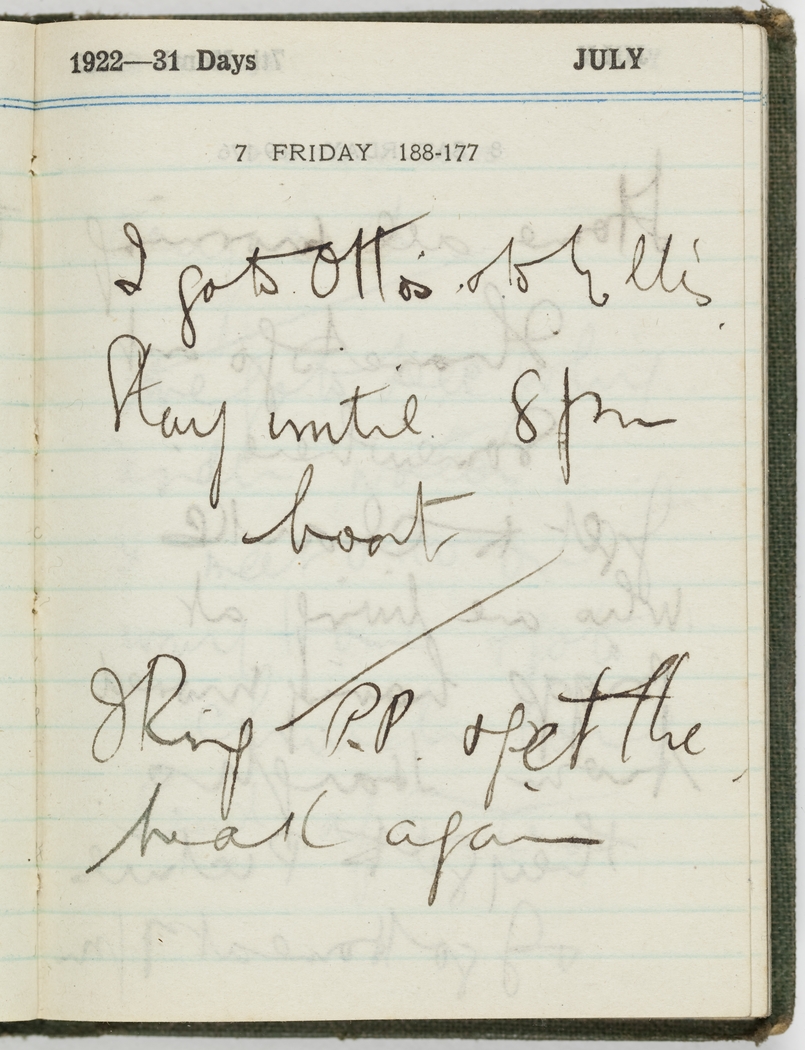 1922—31 Days JULY
7 FRIDAY 188-177
I go to Otto's & to Ellis
Stay until 8 pm
boat
I Ring P.P. & get the
again